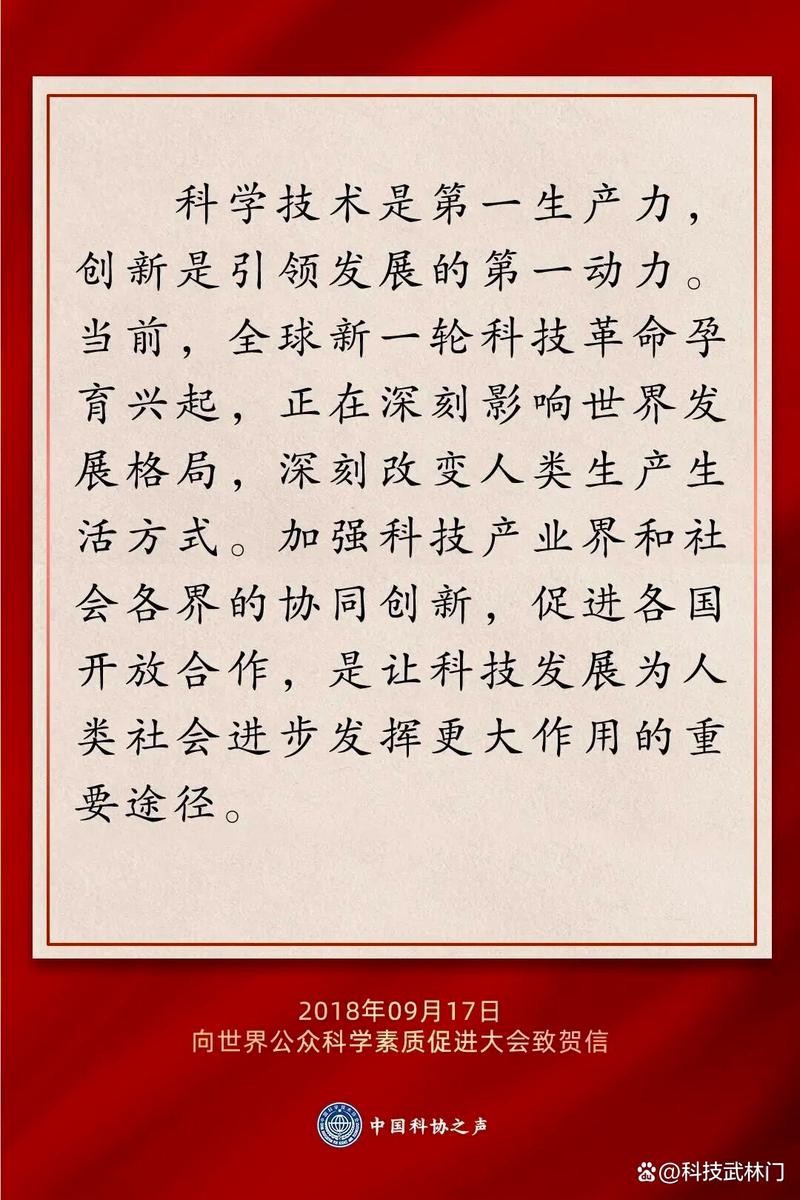 科学技术是第一生产力，
创新是引领发展的第一动力。
当前，全球新一轮科技革命孕
育兴起，正在深刻影响世界发
展格局，深刻改变人类生产生
活方式。加强科技产业界和社
会各界的协同创新，促进各国
开放合作，是让科技发展为人
类社会进步发挥更大作用的重
要途径。
2018年09月17日
向世界公众科学素质促进大会致贺信
中国科协之声
@科技武林门